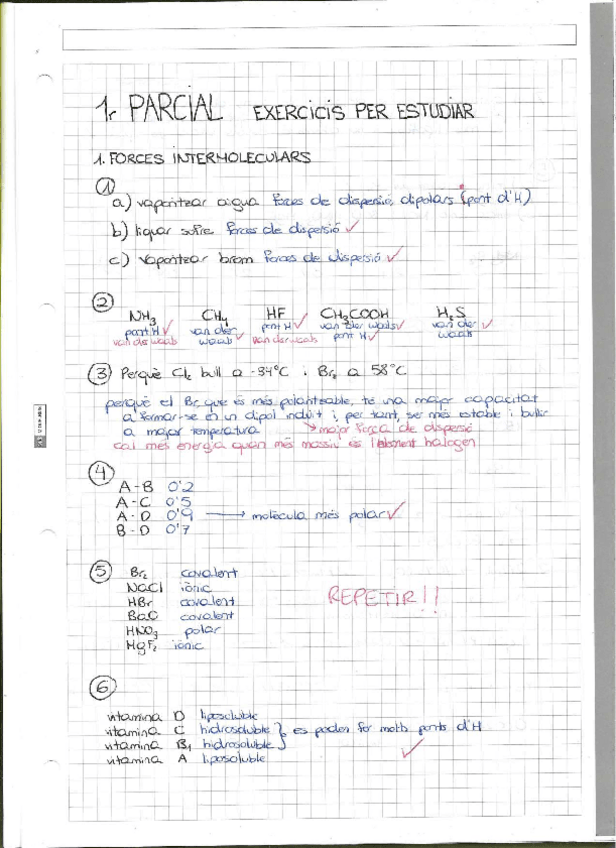 1r PARCIAL EXERCICIS PER ESTUDIAR
1. FORCES INTERMOLECULARS
①
a) vaporitzar aigua forces de dispersió, dipolars (pont d'H)
b) liquar sofre forces de dispersió ✓
c) vaporitzar brom forces de dispersió ✓
②
NH3 CH4 HF CH3COOH H2S
pont H ✓ van der ✓ pont H ✓ van der waals ✓ van der ✓
van der waals waals van der waals pont H ✓ waals
③ Perquè Cl2 bull a -34°C i Br2 a 58°C
perquè el Br2 que és més polaritzable, té una major capacitat
a formar-se en un dipol induït i, per tant, ser més estable i bullir
a major temperatura → major força de dispersió
cal més energia quan més massiu és l'element halogen
④
A-B 0'2
A-C 0'5
A-D 0'9 → molècula més polar ✓
B-D 0'7
⑤ Br2 covalent
NaCl iònic
HBr covalent REPETIR!!
BaO covalent
HNO3 polar
MgF2 iònic
⑥
vitamina D liposoluble
vitamina C hidrosoluble } es poden fer molts ponts d'H
vitamina B1 hidrosoluble ✓
vitamina A liposoluble